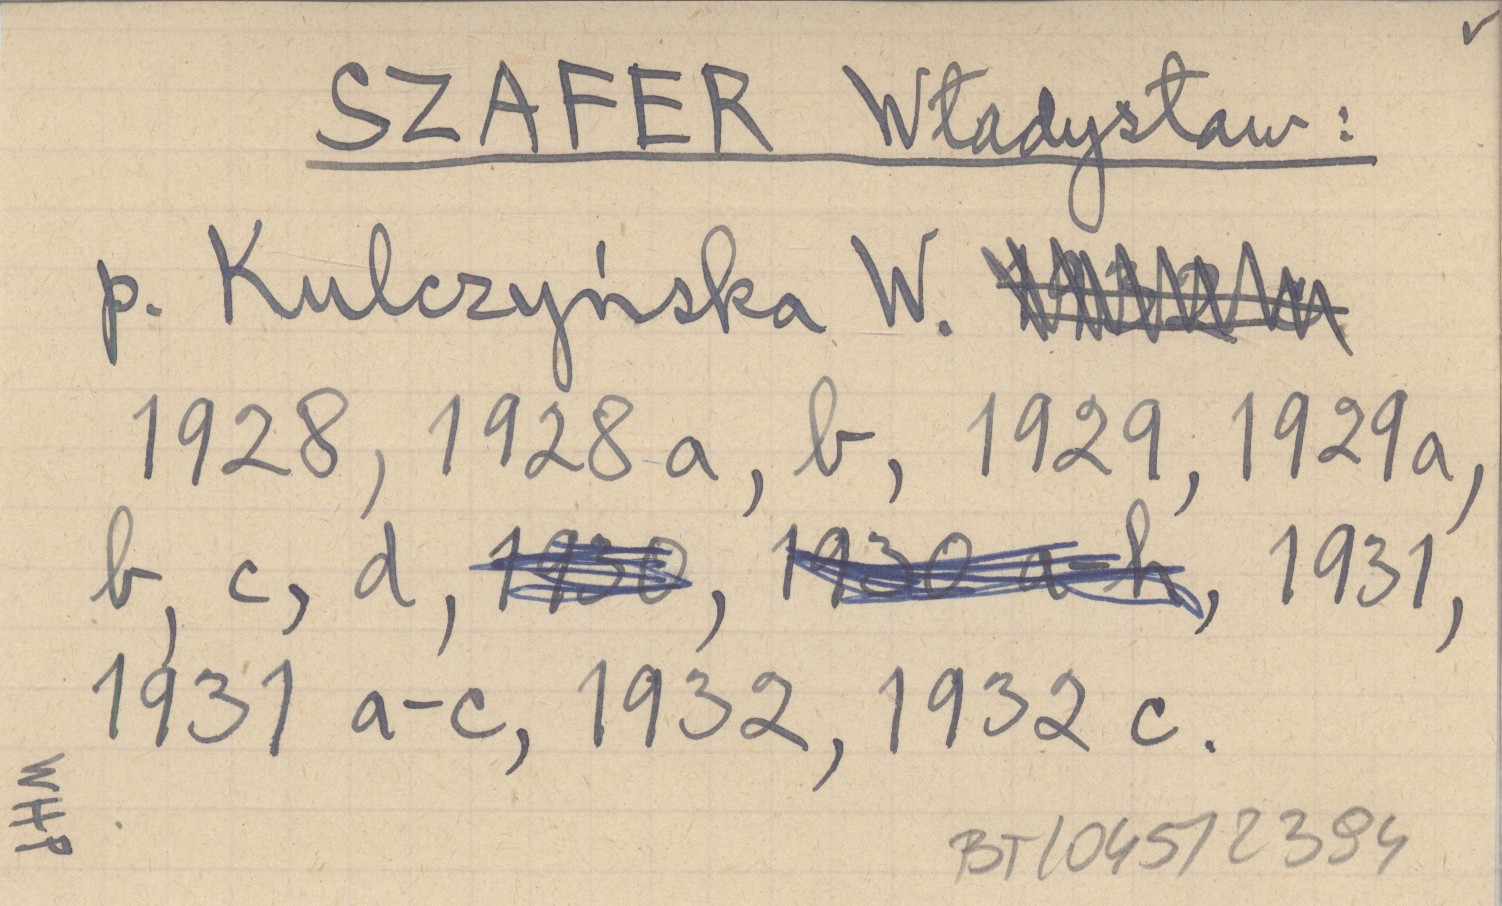 SZAFER Władysław:
p. Kulczyńska W.
1928, 1928 a, b, 1929, 1929a,
b, c, d, 1930, 1930 a-h, 1931,
1931 a-c, 1932, 1932 c.
WHP
BT/045/2394